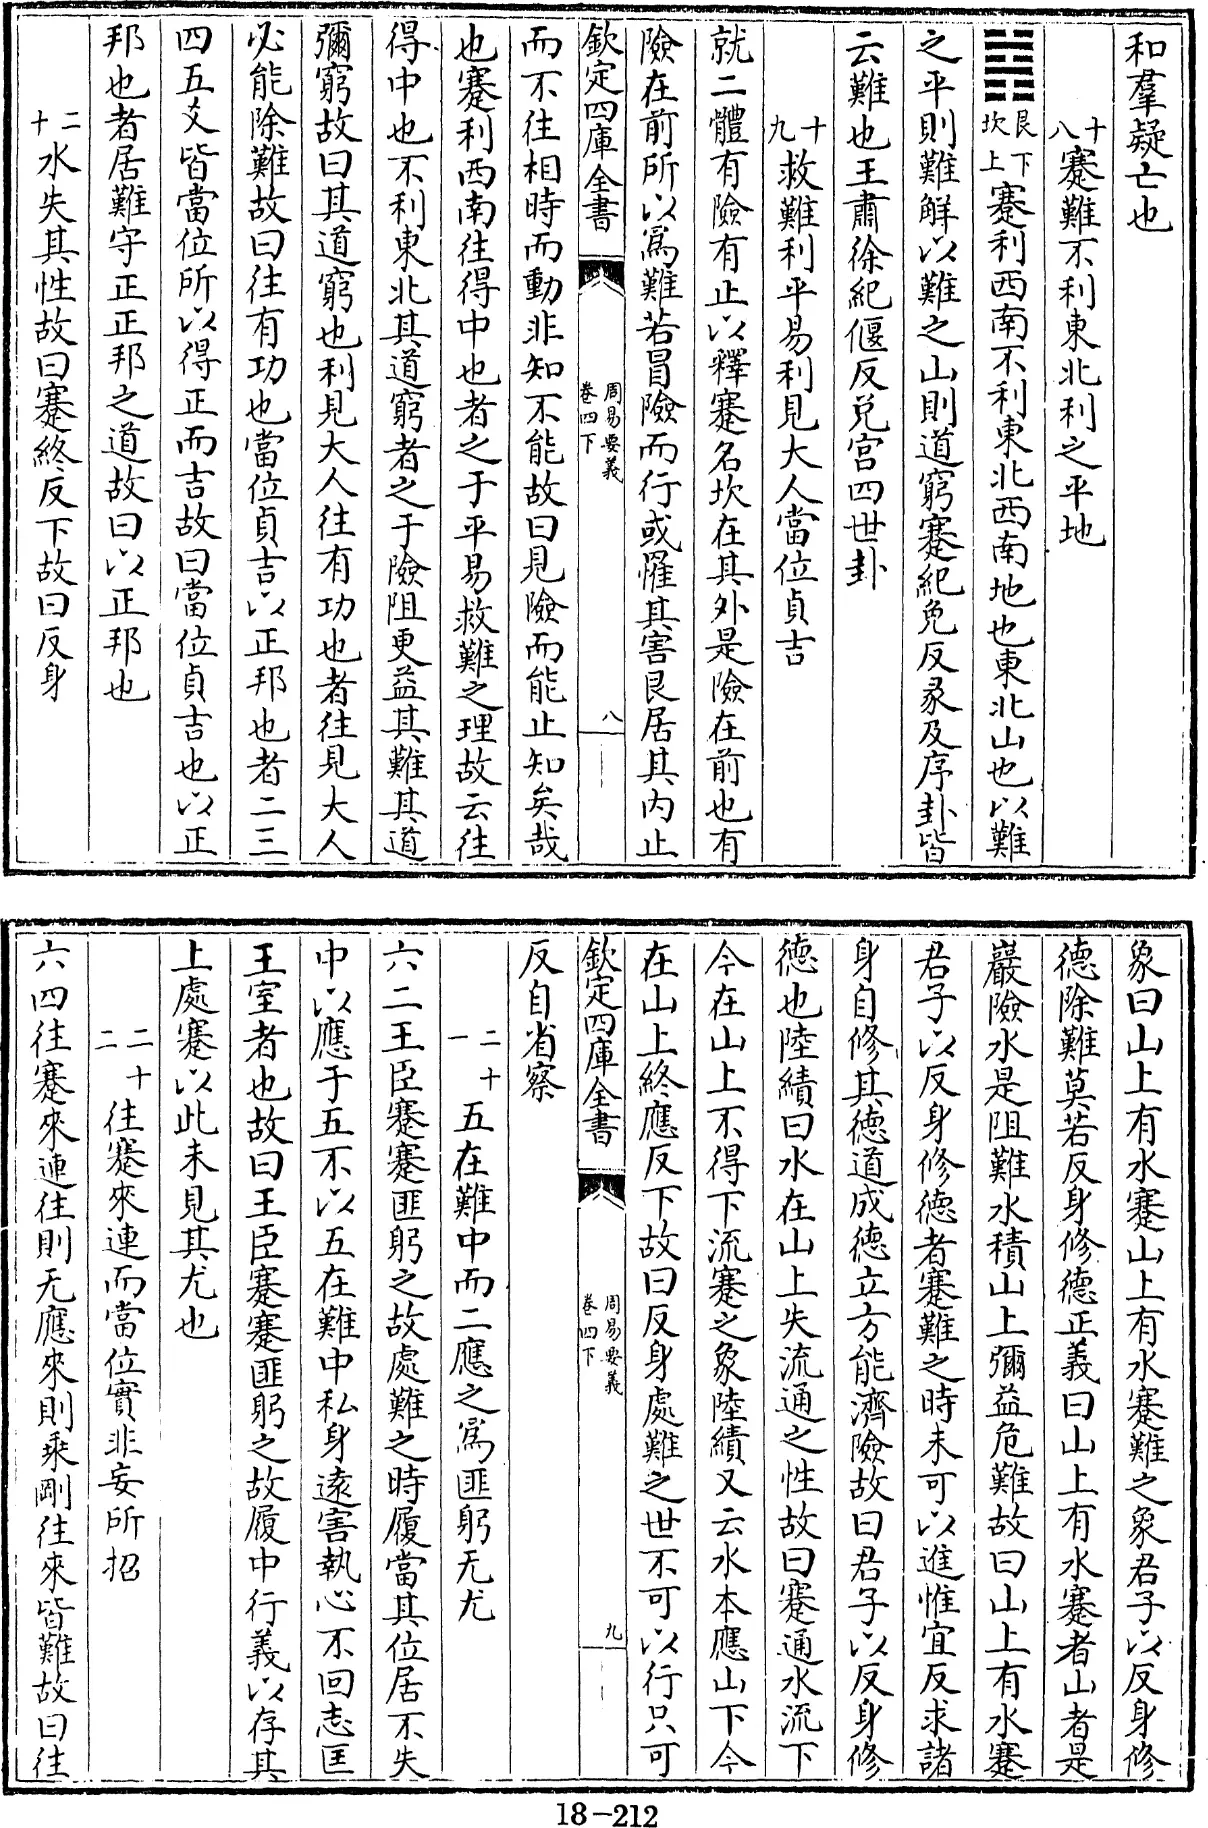 和羣疑亡也
十八蹇難不利東北利之平地
䷦艮下坎上蹇利西南不利東北西南地也東北山也以難
之平則難解以難之山則道窮蹇紀免反彖及序卦皆
云難也王肅徐紀偃反兌宮四世卦
十九救難利平易利見大人當位貞吉
就二體有險有止以釋蹇名坎在其外是險在前也有
險在前所以爲難若冒險而行或罹其害艮居其内止
欽定四庫全書 周易要義 卷四下 八
而不往相時而動非知不能故曰見險而能止知矣哉
也蹇利西南往得中也者之于平易救難之理故云往
得中也不利東北其道窮者之于險阻更益其難其道
彌窮故曰其道窮也利見大人往有功也者往見大人
必能除難故曰往有功也當位貞吉以正邦也者二三
四五爻皆當位所以得正而吉故曰當位貞吉也以正
邦也者居難守正正邦之道故曰以正邦也
二十水失其性故曰蹇終反下故曰反身
象曰山上有水蹇山上有水蹇難之象君子以反身修
德除難莫若反身修德正義曰山上有水蹇者山者是
巖險水是阻難水積山上彌益危難故曰山上有水蹇
君子以反身修德者蹇難之時未可以進惟宜反求諸
身自修其德道成德立方能濟險故曰君子以反身修
德也陸績曰水在山上失流通之性故曰蹇通水流下
今在山上不得下流蹇之象陸績又云水本應山下今
在山上終應反下故曰反身處難之世不可以行只可
欽定四庫全書 周易要義 卷四下 九
反自省察
二十一五在難中而二應之爲匪躬无尤
六二王臣蹇蹇匪躬之故處難之時履當其位居不失
中以應于五不以五在難中私身遠害執心不回志匡
王室者也故曰王臣蹇蹇匪躬之故履中行義以存其
上處蹇以此未見其尤也
二十二往蹇來連而當位實非妄所招
六四往蹇來連往則无應來則乘剛往來皆難故曰往
18-212